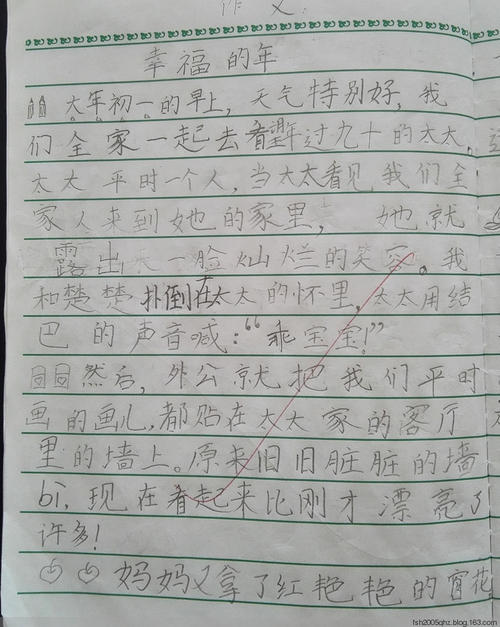 作文
幸福的年
大年初一的早上，天气特别好，我
们全家一起去看望年过九十的太太。
太太平时一个人，当太太看见我们全
家人来到她的家里，她就
露出来一脸灿烂的笑容。我
和楚楚扑倒在太太的怀里，太太用结
巴的声音喊：“乖宝宝！”
然后，外公就把我们平时
画的画儿，都贴在太太家的客厅
里的墙上。原来旧旧脏脏的墙
bì，现在看起来比刚才漂亮了
许多！
妈妈又拿了红艳艳的窗花
fsh2005qhz.blog.163.com